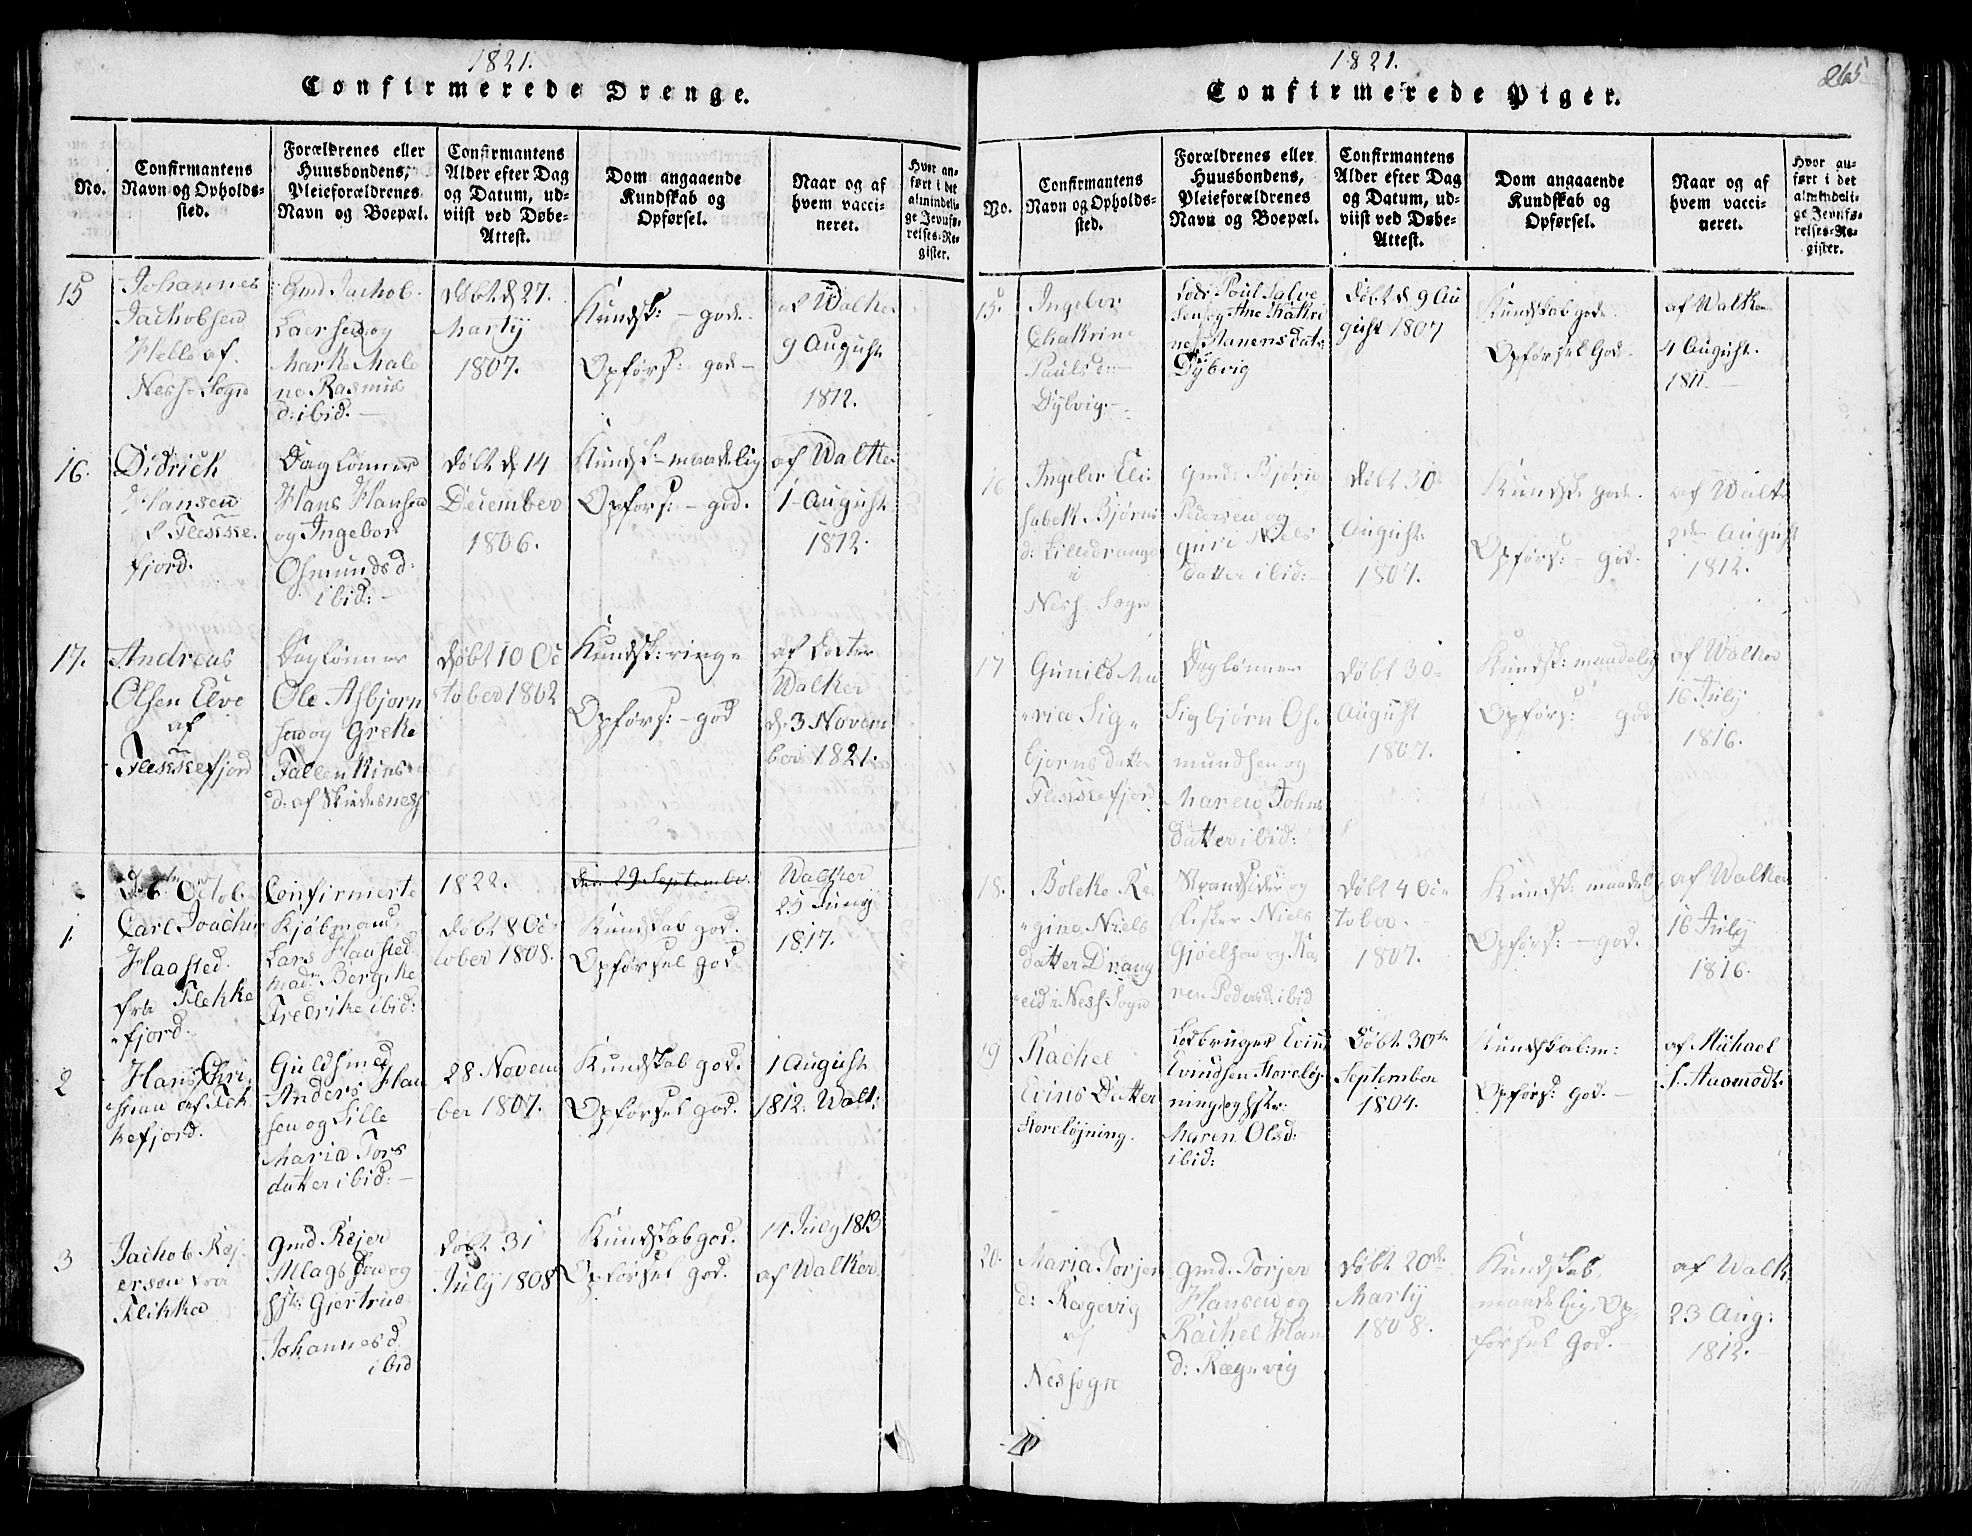 1821.
Confirmerede Drenge.
No.
Confirmantens Navn og Opholds-sted.
Forældrenes eller Huusbondens, Pleieforældrenes Navn og Boepæl.
Confirmantens Alder efter Dag og Datum, ud-viist ved Døbe-Attest.
Dom angaaende Kundskab og Opførsel.
Naar og af hvem vacci-neret.
Hvor an-ført i det almindeli-ge Jevnfø-relses-Re-gister.
15
Johannes
Jachobsen
Helle af
Ness-Sogn
Gmd Jachob
Laersen og
Marke Male
ne Rasmus
d: ibid.
døbt d 27.
Marty
1807.
Kundsk: - gode
Opførs: god -
af Walker
9 August
1812.
16.
Didrich
Hansen
Flekke
fjord.
Daglønner
Hans Hansen
og Ingebor
Osmundsd:
ibid: -
døbt d 14
December
1806.
Kundsk- maadelig
Opførs: - god.
af Walke
1 August
1812.
17.
Andreas
Olsen Elve
af
Flekkefjord
Daglønner
Ole Asbjorn
sen og Grete
Tallenkins
d: af Skudesness
døbt 10 Oc
tober 1802
Kundsk: ringe
Opførs: - god
af Docter
Walker
d. 3 Novem
ber 1821.
Octob
Confirmerte
1822.
den 29 Septembr.
1.
Carl Joachim
Haasted
fra Flekke
fjord.
Kjøbmand
Lars Haasted
mad: Bergitte
Fredrike ibid:
døbt 8 Oc
tober 1808.
Kundskab god.
Opførsel god
Walker
25 Juny
1817.
2
Hans Chri
stian af Flek
kefjord.
Guldsmed
Anders Han
sen og Sille
Maria Tors
datter ibid: -
28 Novem
ber 1807.
Kundskab god.
Opførsel god.
1 August
1812: Walk:
3
Jachob Rej
ersen
Flikka
Gmd Rejer
Alagsen og
Hstr: Gjertrud
Johannesd
ibid
døbt 31
July 1808
Kundskab god.
Opførsel god.
14 July 1813
af Walker
1821.
Confirmerede Piger.
265
No.
Confirmantens Navn og Opholds-sted.
Forældrenes eller Huusbondens, Pleieforældrenes Navn og Boepæl.
Confirmantens Alder efter Dag og Datum, ud-viist ved Døbe-Attest.
Dom angaaende Kundskab og Opførsel.
Naar og af hvem vacci-neret.
Hvor an-ført i det almindeli-ge Jevnfø-relses-Re-gister.
15.
Ingebor
Chatrine
Pauls d
Dybvig. -
Lods Poul Salve
sen og Ane Kathri
ne Manensdatr
Dybvig
døbt d 9 Au
gust 1807
Kundskab gode.
Opførsel God.
af Walker
4 August.
1811
16
Ingebor Eli
sabet Bjørns
d: Lilledrange
i
Ness-Sogn
Gmd: Bjørn
Pedersen og
Guri Niels
datter ibid:
døbt 30
August
1807.
Kundsk gode.
Opførs: - god.
af Walk
2den August
1812.
17
Gunild Ma
ria Sig
bjørns datter
Flekkefjord
Daglønner
Sigbjørn Os
mundsen og
Maren Johns
datter ibid:
døbt 30
August
1807.
Kundsk: maadelig
Opførs: god
af Walker
16 July
1816.
18.
Bolete Re
gine Niels
datter Drang
eid i Ness-Sogn
Strandsider og
fisker Niels
Gjoelsen og Ka
ren Pedersd. ibid
døbt 4 Oc
tober.
1807.
Kundsk: maadelig
Opførs: - god.
af Walker
16 July
1816.
19
Rachel
Evins Datter
Storeløjning.
Lodbruger Evin
Evindsen Storeløj
ning og Hstr:
Maren Olsd:
ibid:
døbt 30te
September
1804.
Kundskab: m:
Opførs: God. -
af Michael
S. Aasmodt.
20.
Maria Torjer
d: Rægevig
af
Nessogn
Gmd. Torjer
Hansen og
Rachel Han
d: Rægevig
døbt 20de
Marty
1808.
Kundskab.
maadelig. Op-
førsel God. -
af Walk
23 Aug:
1812.